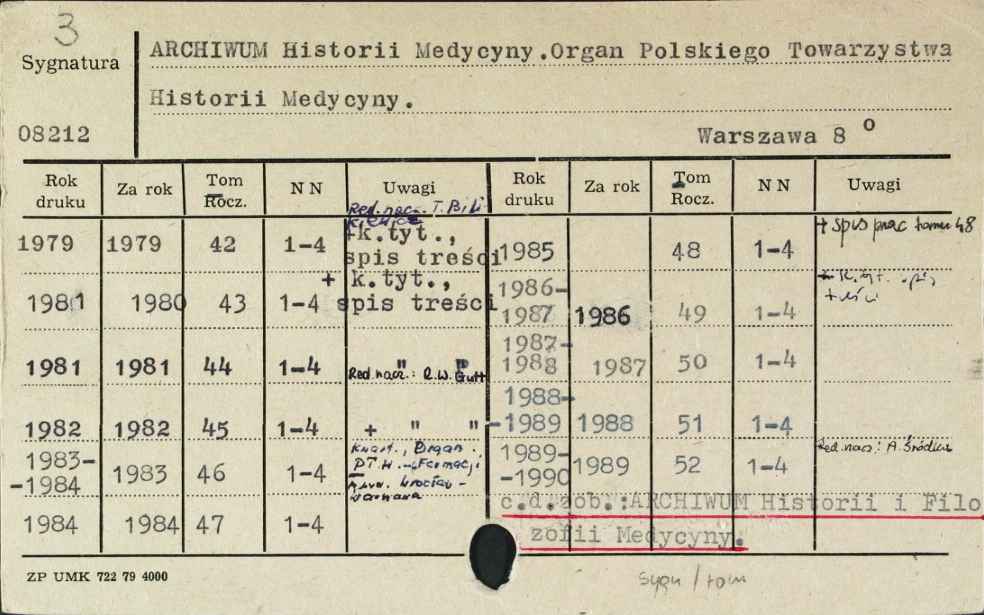 3
Sygnatura
ARCHIWUM Historii Medycyny.Organ Polskiego Towarzystwa
Historii Medycyny.
08212
Warszawa 8 o
Rok druku Za rok Tom Rocz. NN Uwagi Rok druku Za rok Tom Rocz. NN Uwagi
Red. nacz. T. Bili
kiewicz
1979 1979 42 1-4 +k.tyt.,
spis treści
1981 1980 43 1-4 + k.tyt.,
spis treści
1981 1981 44 1-4 " "
Red. nacz.: R.W. Gutt
1982 1982 45 1-4 + " "
1983-
-1984 1983 46 1-4 Kwart., Organ
PT.H.
1984 1984 47 1-4
1985 48 1-4 + spis prac tomu 48
1986-
1987 1986 49 1-4 + k. tyt. spis
treści
1987-
1988 1987 50 1-4
1988-
-1989 1988 51 1-4
1989-
-1990 1989 52 1-4 Red. nacz: A. Śródka
c.d.zob.:ARCHIWUM Historii i Filo
zofii Medycyny.
ZP UMK 722 79 4000
sygn/tom